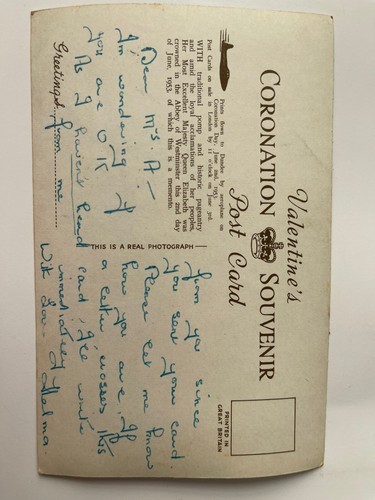 Valentine's
CORONATION SOUVENIR
Post Card
PRINTED IN
GREAT BRITAIN
Prints flown to Dundee by aeroplane on
Coronation Day, June 2nd, 1953.
Post Cards on sale in London by 11 o'clock on June 3rd.
WITH traditional pomp and historic pageantry
and amid the loyal acclamations of her peoples,
Her Most Excellent Majesty Queen Elizabeth was
crowned in the Abbey of Westminster this 2nd day
of June, 1953, of which this is a memento.
Dear Mrs. A—
I'm wondering if
you are O.K
As I haven't heard
Greetings from me
THIS IS A REAL PHOTOGRAPH
from you since
you sent your card.
Please let me know
how you are. If
a letter crosses this
card, I'll write
immediately
With Love Thelma.